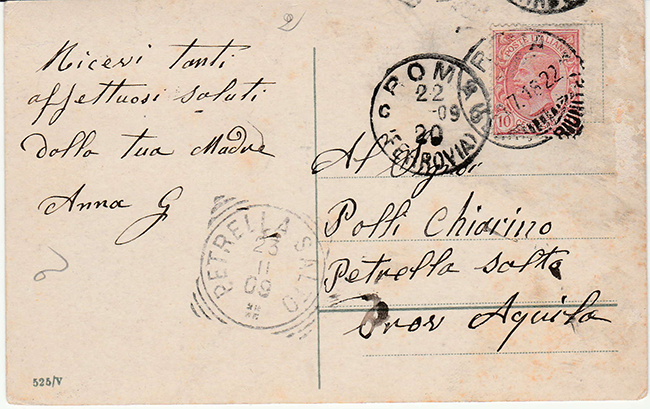 2
Ricevi tanti
affettuosi saluti
dalla tua Madre
Anna G
2
525/V
ROMA
22
09
20
(FERROVIA)
POSTE ITALIANE
10
Al Signor
Polli Chiarino
Petrella Salto
Prov Aquila
PETRELLA SALTO
23
11
09